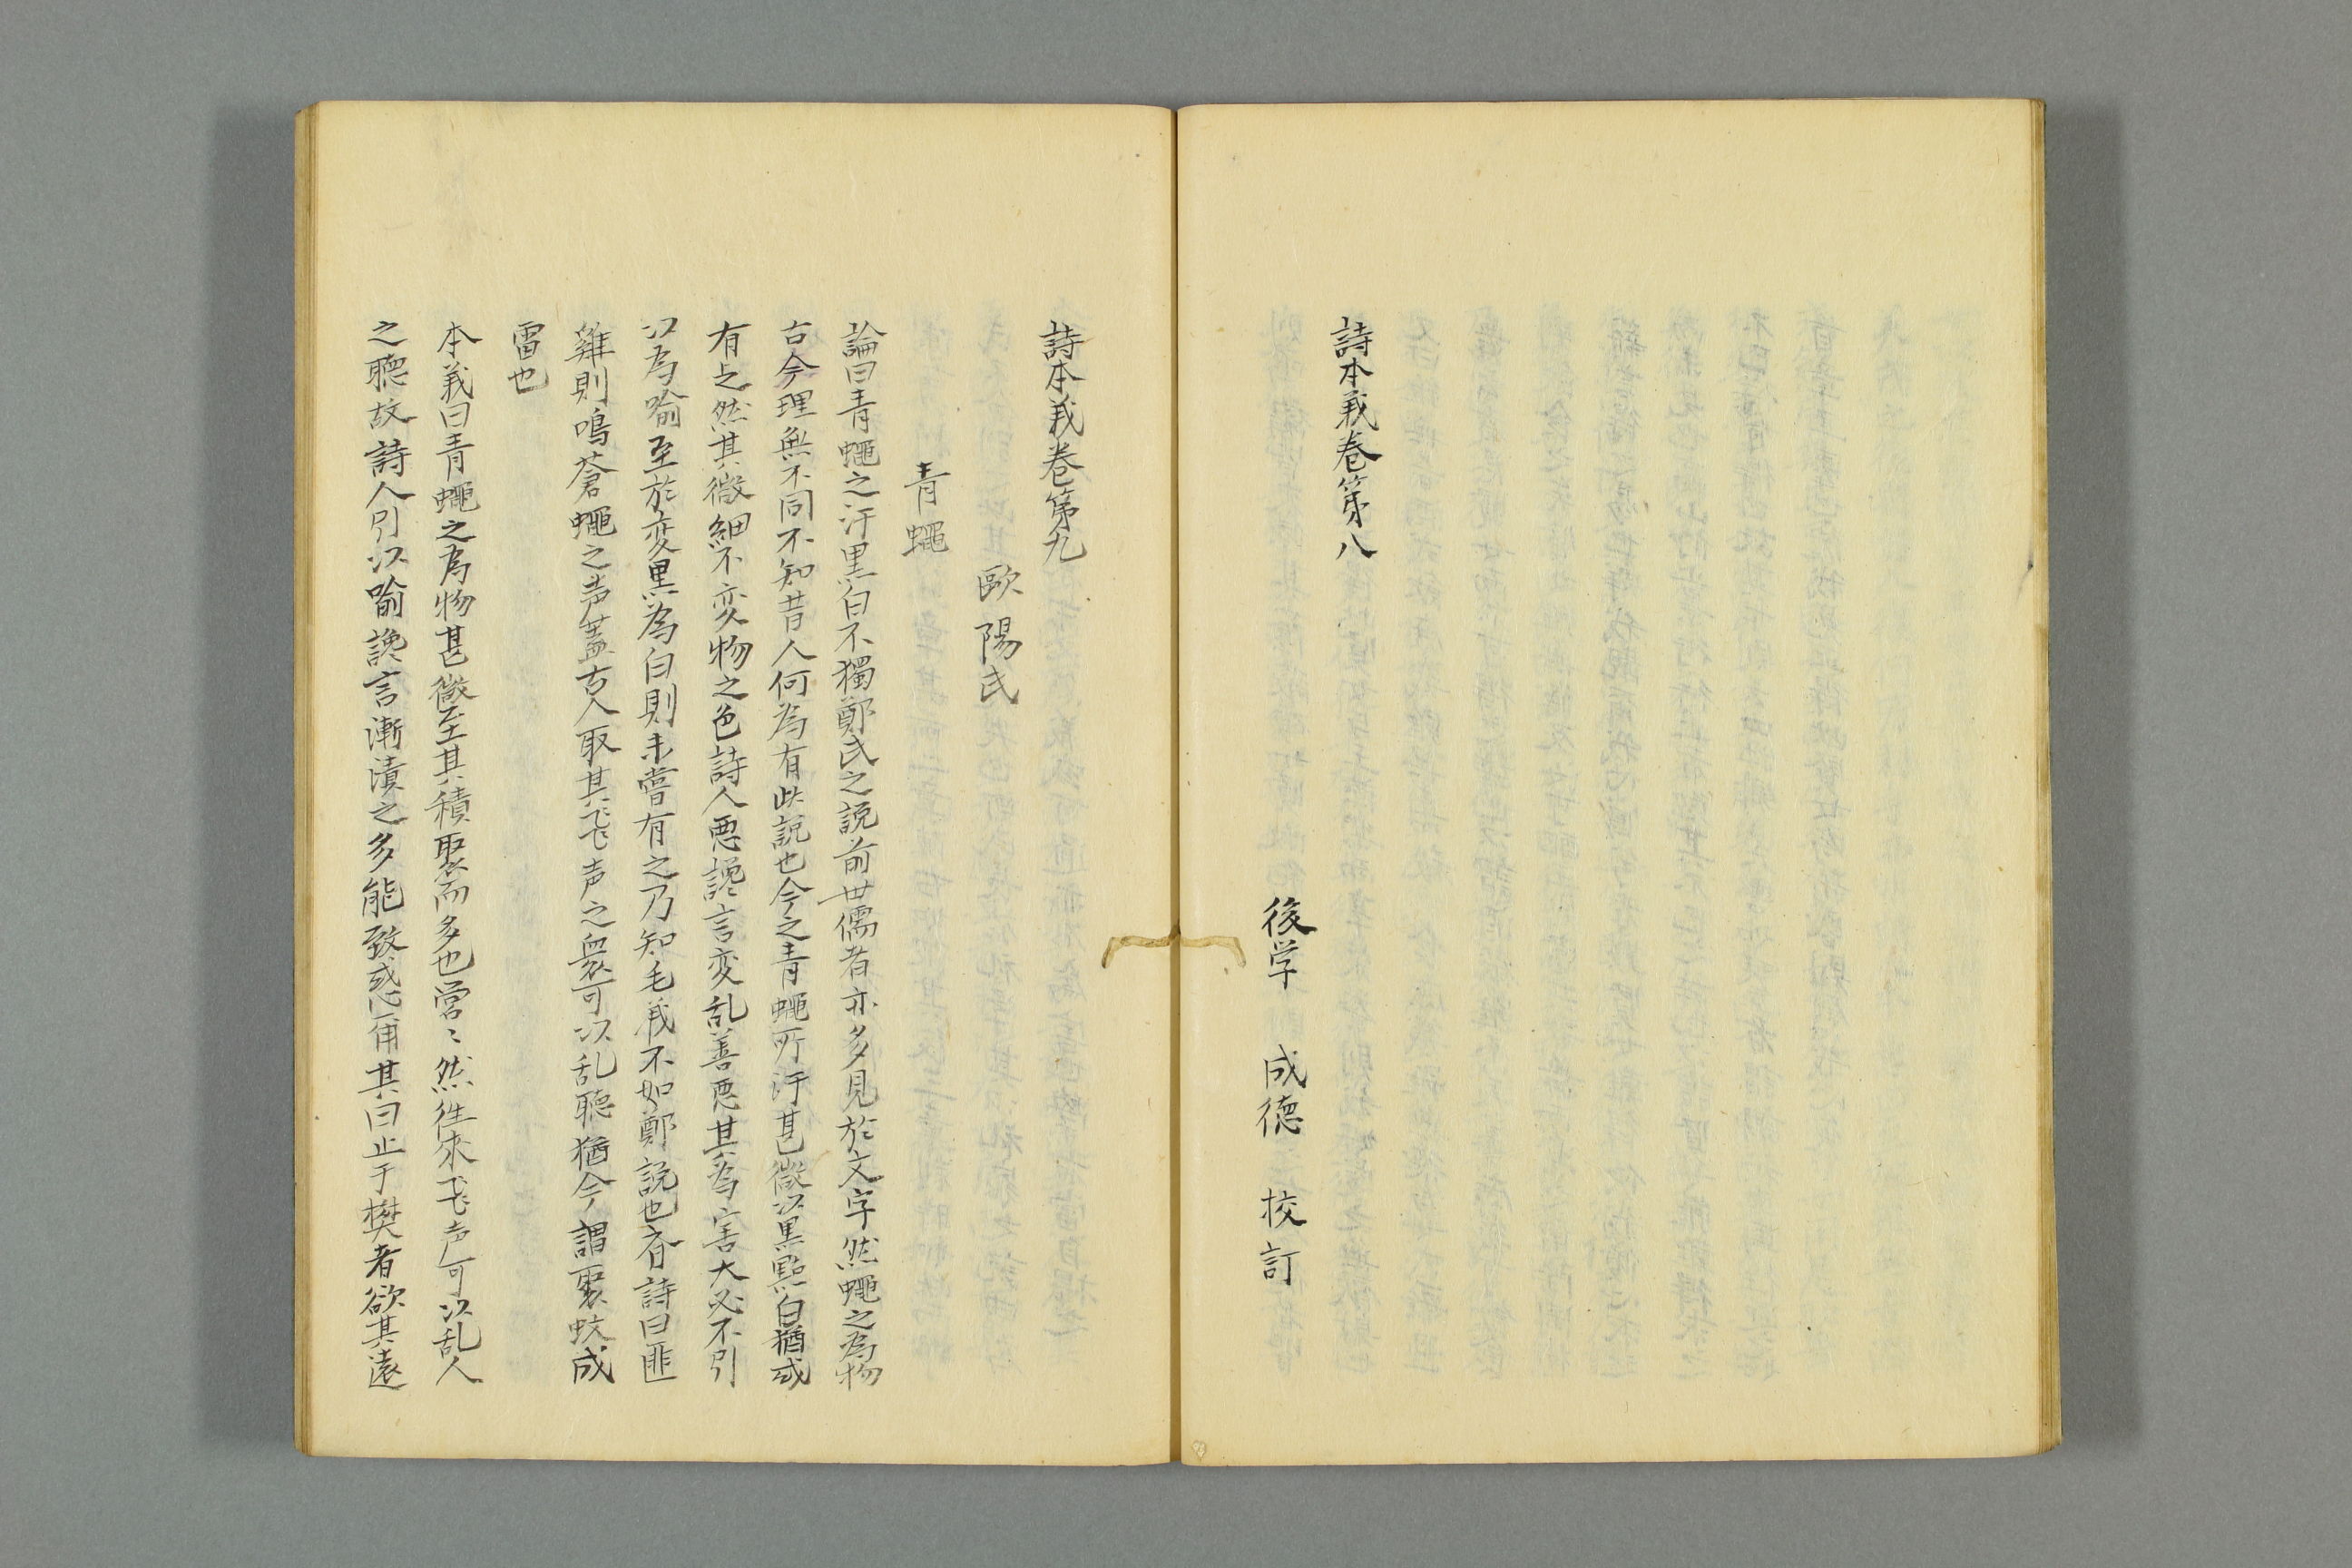 詩本義卷第八
後学 成德 校訂
詩本義卷第九
歐陽氏
青蠅
論曰青蠅之汙黒白不獨鄭氏之説前世儒者亦多見於文字然蠅之為物
古今理無不同不知昔人何為有此説也今之青蠅所汙甚微以黒點白猶或
有之然其微細不変物之色詩人悪讒言変乱善悪其為害大必不引
以為喻至於変黒為白則未嘗有之乃知毛義不如鄭説也齐詩曰匪
雞則鳴蒼蠅之声蓋古人取其飞声之衆可以乱聴猶今謂聚蚊成
雷也
本義曰青蠅之為物甚微至其積聚而多也営〻然徃來飞声可以乱人
之聴故詩人引以喻讒言漸漬之多能致惑尓其曰止于樊者欲其遠